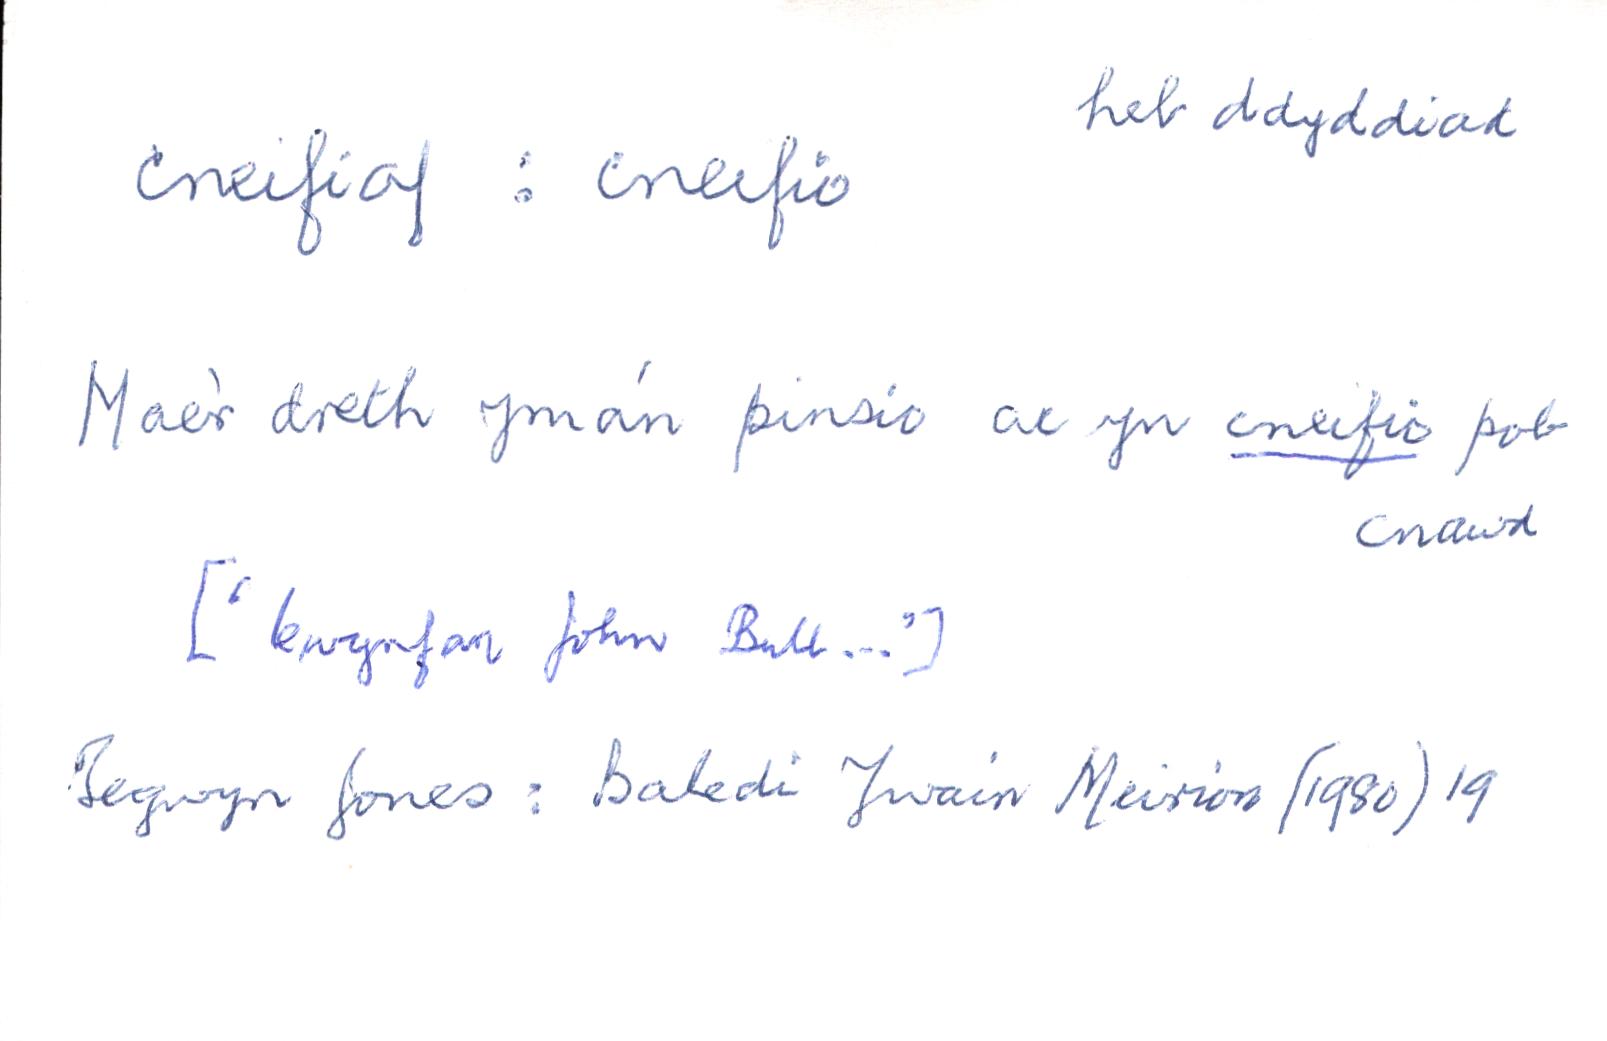 heb ddyddiad
cneifiaf : cneifio
Mae'r dreth ymán pinsio ac yn cneifio pob
cnawd
['Cwynfan John Bull...']
Tegwyn Jones : Baledi Ywain Meirion (1980) 19